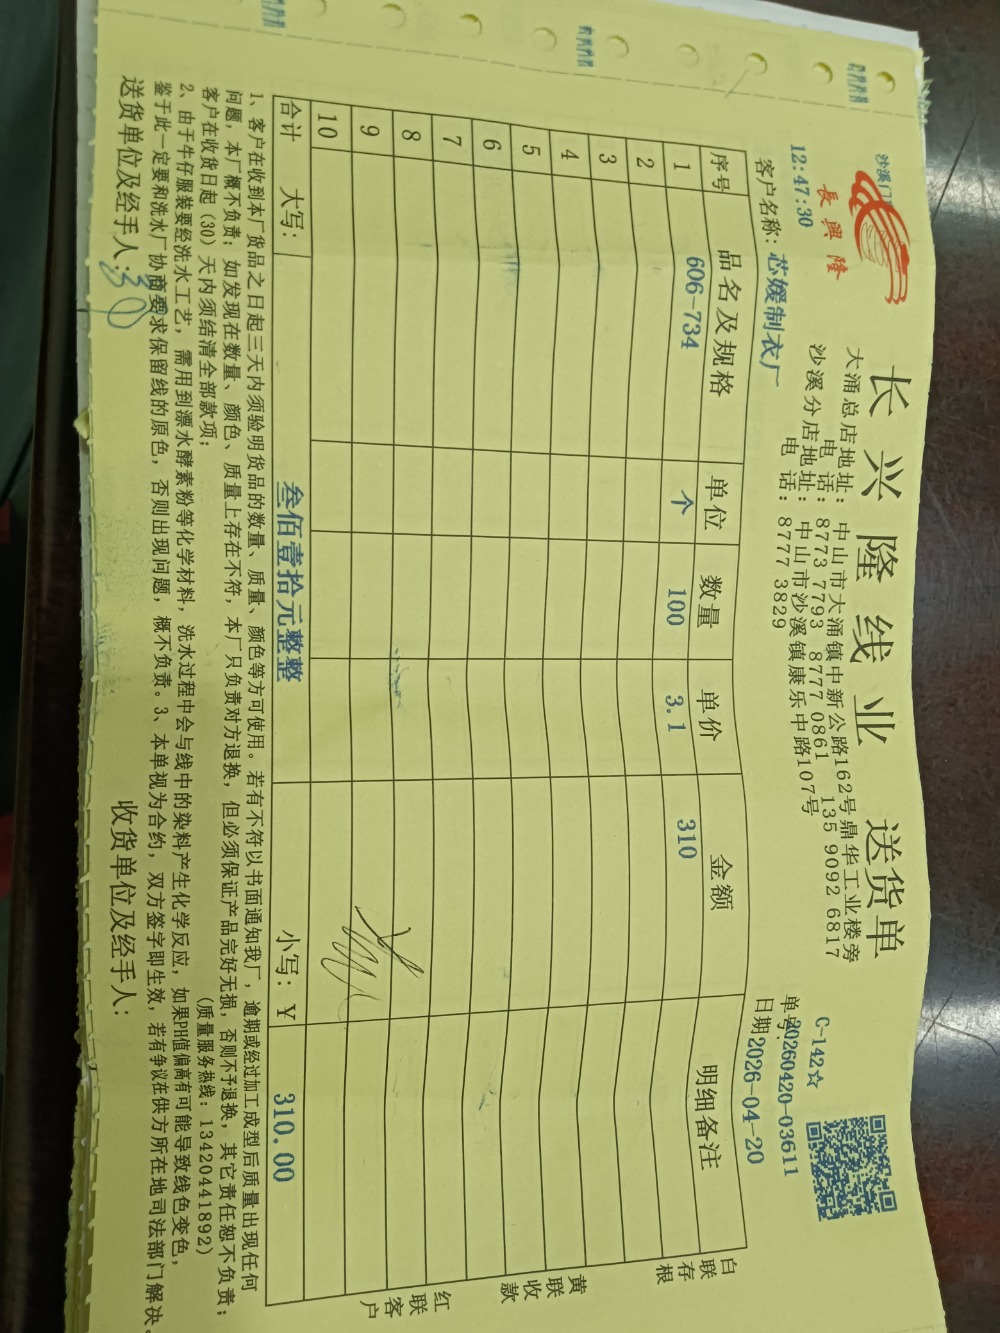 长兴隆线业 送货单
長興隆
沙溪门
12:47:30
大涌总店地址:中山市大涌镇中新公路162号鼎华工业楼旁
电 话:8773 7793 8777 0861 135 9092 6817
沙溪分店地址:中山市沙溪镇康乐中路107号
电 话:8777 3829
C-142☆
单号:20260420-03611
客户名称:芯媛制衣厂
日期2026-04-20
序号 品名及规格 单位 数量 单价 金额 明细备注
1 606-734 个 100 3.1 310
2
3
4
5
6
7
8
9
10
合计 大写: 叁佰壹拾元整整 小写:¥ 310.00
白联存根
黄联收款
红联客户
1、客户在收到本厂货品之日起三天内须验明货品的数量、质量、颜色等方可使用。若有不符以书面通知我厂,逾期或经过加工成型后质量出现任何
问题,本厂概不负责;如发现在数量、颜色、质量上存在不符,本厂只负责对方退换,但必须保证产品完好无损,否则不予退换,其它责任恕不负责;
客户在收货日起(30)天内须结清全部款项; (质量服务热线:13420441892)
2、由于牛仔服装要经洗水工艺,需用到漂水酵素粉等化学材料,洗水过程中会与线中的染料产生化学反应,如果PH值偏高有可能导致线色变色,
鉴于此一定要和洗水厂协商要求保留线的原色,否则出现问题,概不负责。3、本单视为合约,双方签字即生效,若有争议在供方所在地司法部门解决。
送货单位及经手人: 收货单位及经手人: